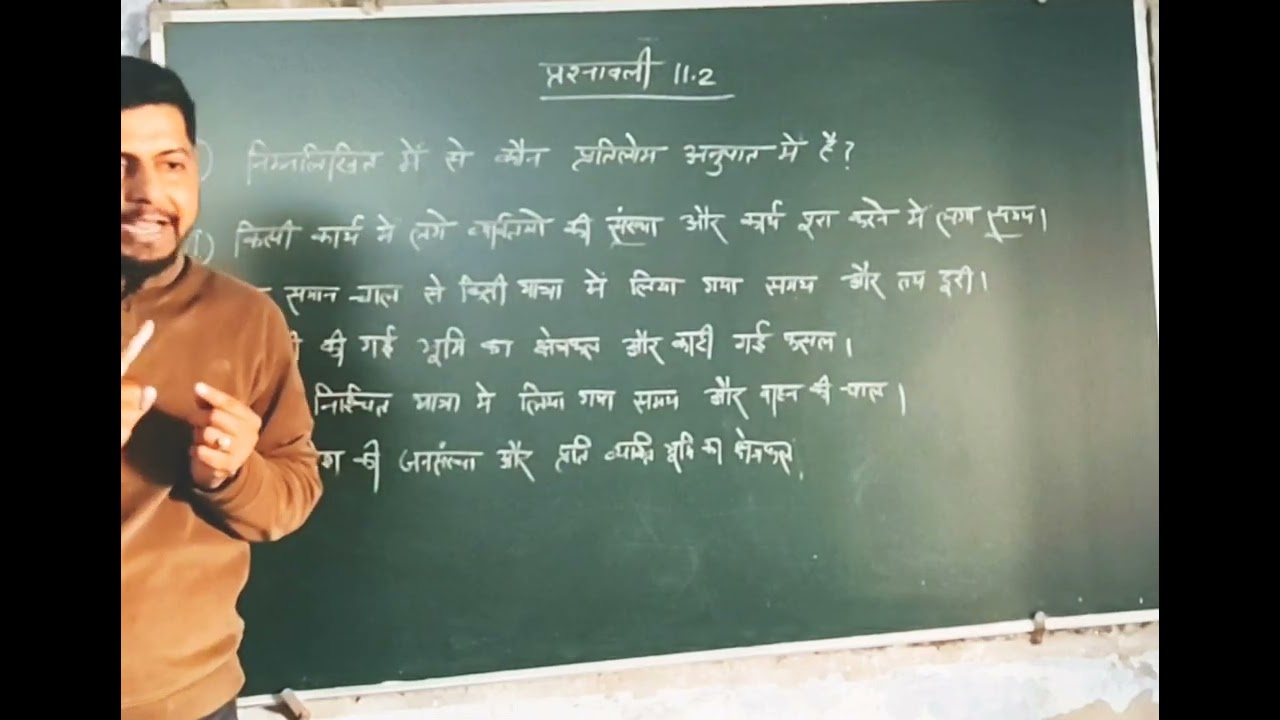 प्रश्नावली 11.2
) निम्नलिखित में से कौन प्रतिलोम अनुपात में है?
) किसी कार्य में लगे व्यक्तियो की संख्या और कार्य पूरा करने में लगा समय।
समान चाल से किसी यात्रा में लिया गया समय और तय दूरी।
की गई भूमि का क्षेत्रफल और काटी गई फसल।
निश्चित यात्रा मे लिया गया समय और वाहन की चाल।
की जनसंख्या और प्रति व्यक्ति भूमि का क्षेत्रफल।